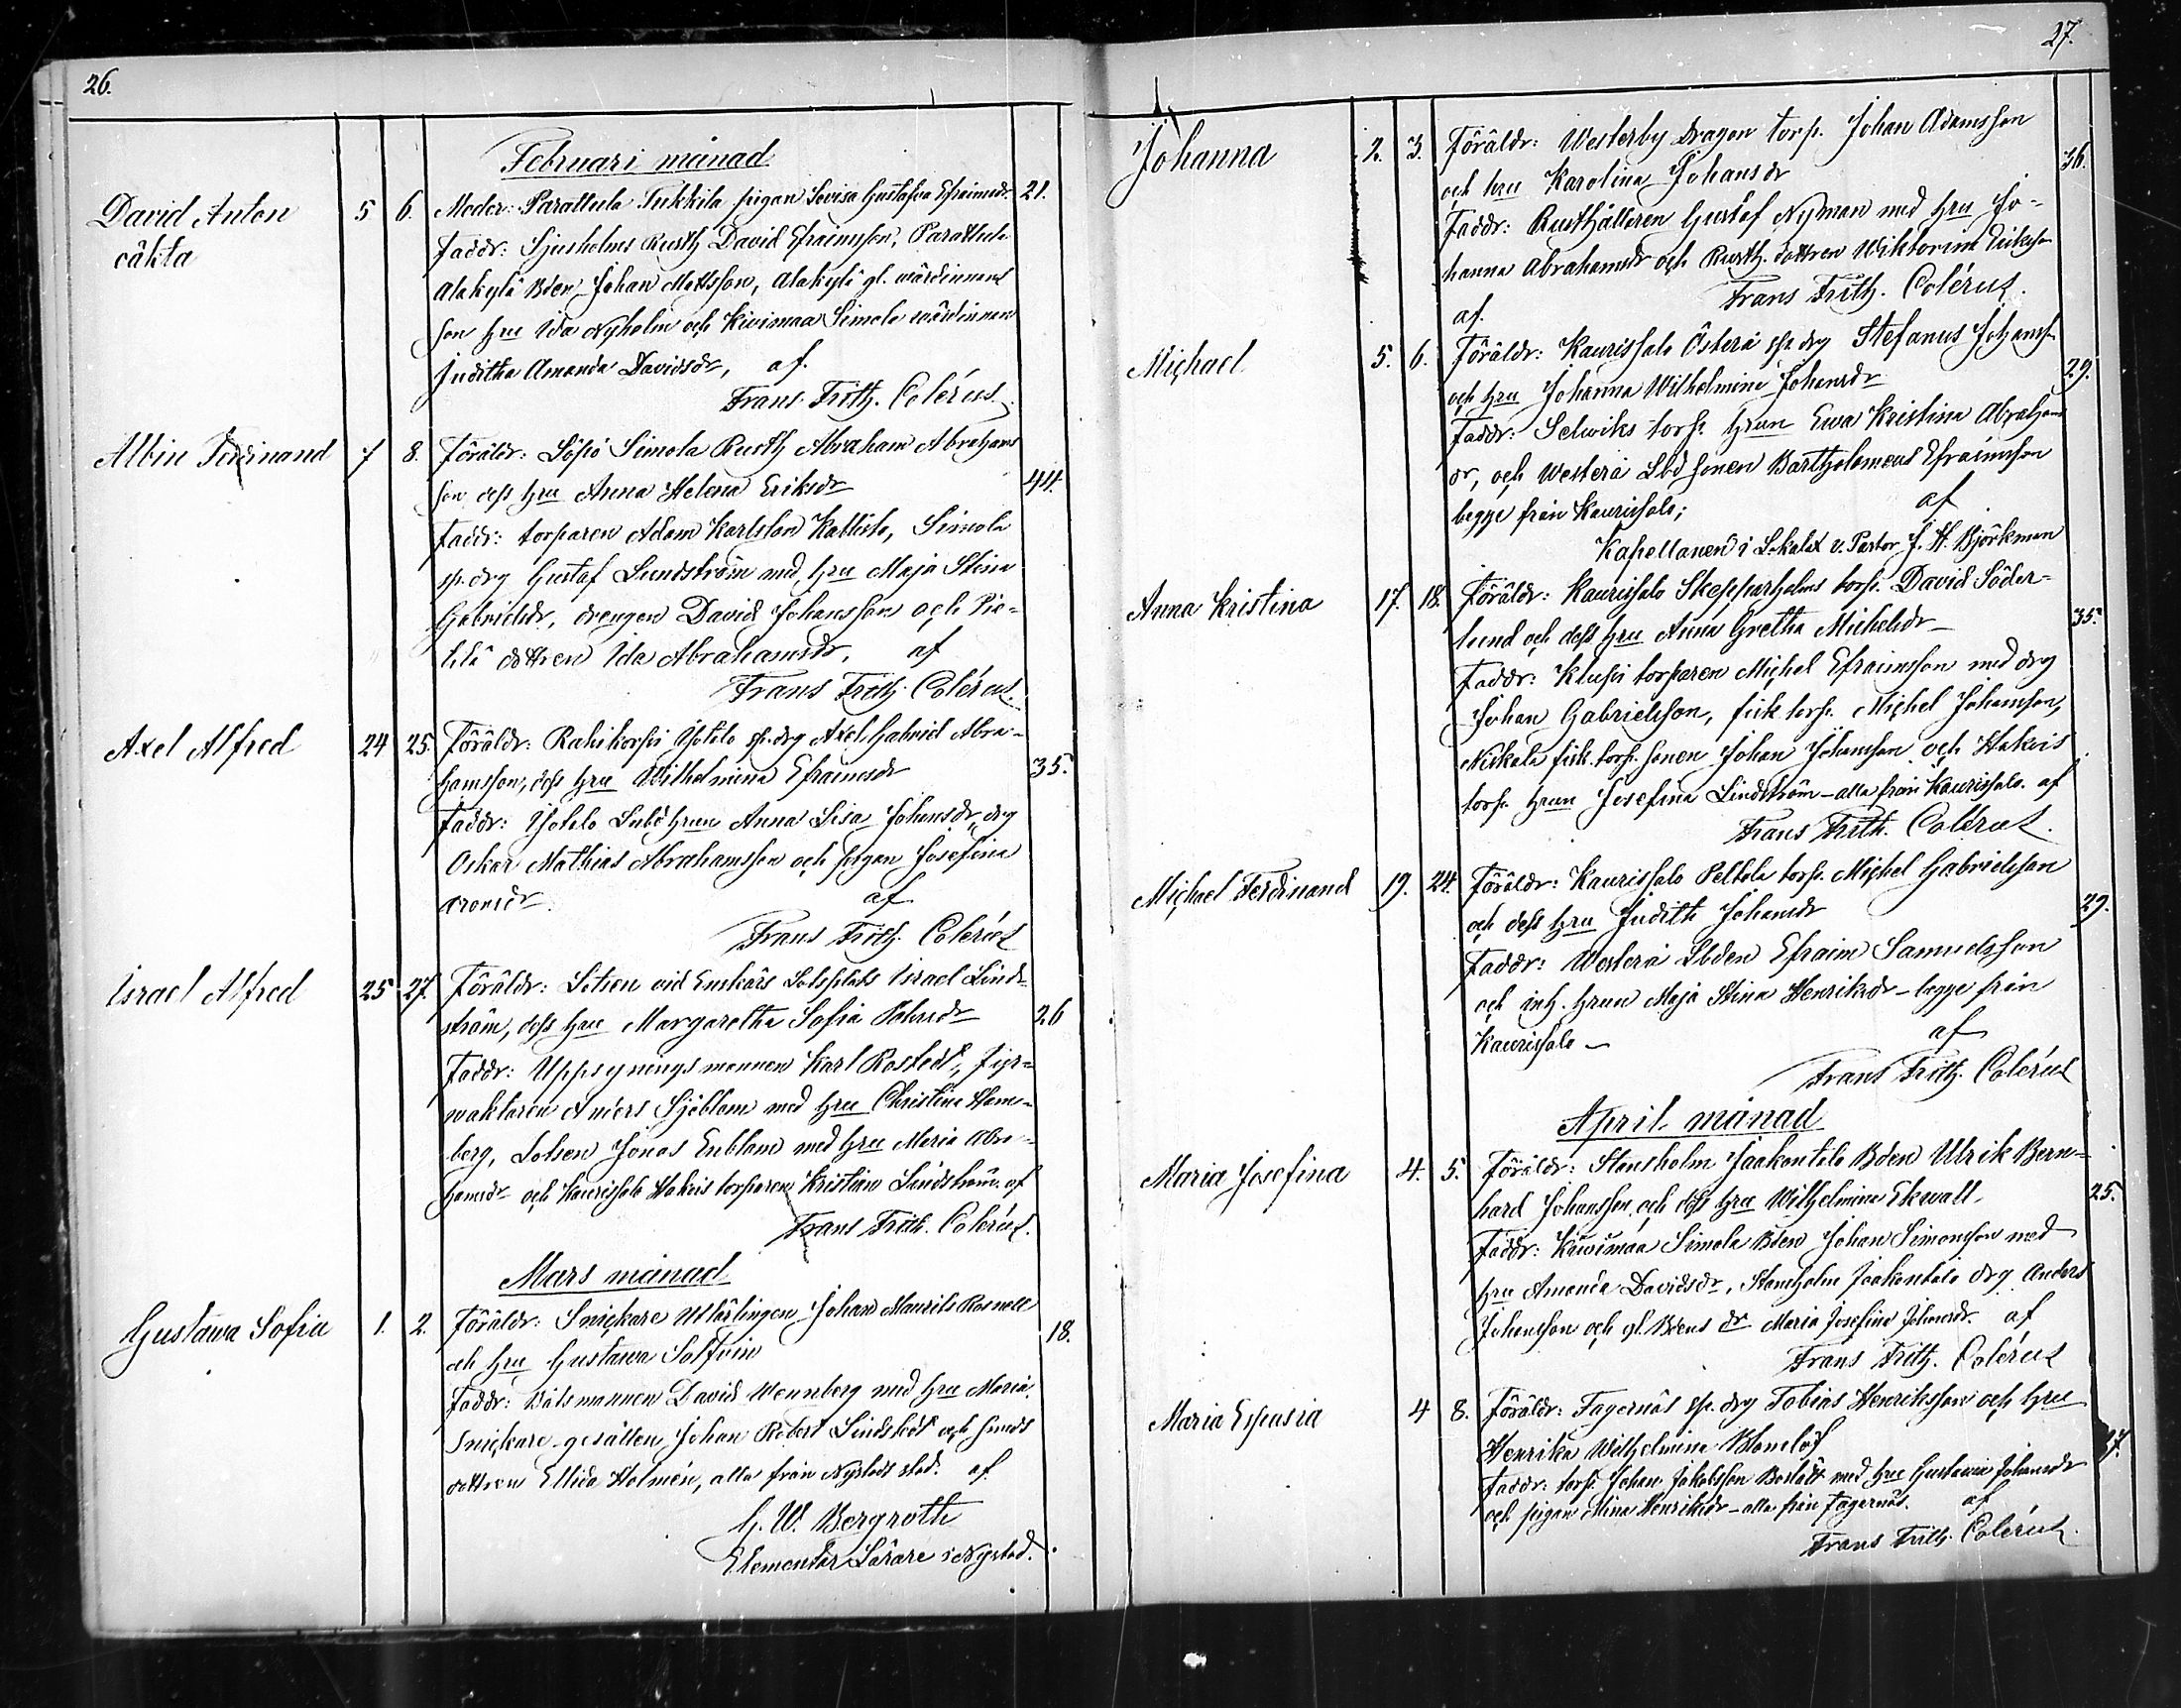 26.
Februari månad
David Anton 5 6. Moder: Parattula Tukkila pigan Lovisa Gustafva Efraimsdr. 21.
oäkta Faddr: Ljusholms Rusth David Efraimsson, Parattula
Alakylä Bden Johan Mattsson, Alakylä gl. wärdinnans
son hru Ida Nyholm och Kivimaa Simola wärdinnan
Juditha Amanda Davidsdr, af.
Frans Frith. Colérus.
Albin Ferdinand 7 8. Föräldr: Löpö Simola Rusth Abraham Abrahams
son, dess hru Anna Helena Eriksdr 44.
Faddr: torparen Adam Karlsson Kallisto, Simola
sp. drg Gustaf Lundström med hru Maja Stina
Gabrielsdr, drengen David Johansson och Pie-
tilä dottren Ida Abrahamsdr, af
Frans Frith. Colérus.
Axel Alfred 24 25. Föräldr: Rahikorpi Yotolo sp. drg Axel Gabriel Abra-
hamsson, dess hru Wilhelmina Efraimsdr 35.
Faddr: Yotolo hrun Anna Lisa Johansdr, drg
Oskar Mathias Abrahamsson och pigan Josefina
Aronsdr. af
Frans Frith. Colérus
Israel Alfred 25 27. Föräldr: Lotsen vid Enskärs Lotsplats Israel Lind-
ström, dess hru Margaretha Sofia 26
Faddr: Uppsyningsmannen Karl Rostedt, Fyr-
waktaren Anders Sjöblom med hru Christina Ham-
berg, Lotsen Jonas Enblom med hru Maria Abra-
hamsdr och Kaurissalo Hakvis torparen Kristian Lindström. af
Frans Frith. Colérus.
Mars månad
Gustava Sofia 1. 2. Föräldr: Snickare Utlärlingen Johan Maurits Rosnell
och hru Gustava Solfvin 18.
Faddr: Båtsmannen David Wennberg med hru Maria.
Snickare-gesällen Johan Robert och
dottren Ellida Holmén, alla från Nystads stad. af
G. W. Bergroth
Elementar Lärare i Nystad.
27.
Johanna 2. 3. Föräldr: Westerby Dragon torp. Johan Adamsson
och hru Karolina Johansdr 36.
Faddr: Rusthållaren Gustaf Nyman med hru Jo-
hanna Abrahamsdr och Rusth. dottren Wiktorina Eriksson
af. Frans Frith. Colérus.
Michael 5. 6. Föräldr: Kaurissalo Österå sp. drg Stefanus Johanss.
och hru Johanna Wilhelmina Johansdr 29.
Faddr: Selwiks torp. hrun Ewa Kristina Abrahams
dr, och Westerå Lbd sonen Bartholomeus Efraimsson
begge från Kaurissalo; af
Kapellanen i Lokalax v. Pastor J. H. Björkman
Anna Kristina 17. 18. Föräldr: Kaurissalo Skepparholms torp. David Söder-
lund och dess hru Anna Gretha Michelsdr 35.
Faddr: Klupi torparen Michel Efraimsson med drg
Johan Gabrielsson, fisk. torp. Michel Johansson,
Niskala fisk. torp. sonen Johan Johansson och Hakvis
torp. hrun Josefina Lindström - alla från Kaurissalo. af
Frans Frith. Colérus.
Michael Ferdinand 19. 24. Föräldr: Kaurissalo Peltola torp. Michel Gabrielsson
och dess hru Judith Johansdr 29.
Faddr: Westerå Lbden Efraim Samuelsson
och inh. hrun Maja Stina Henriksdr - begge från
Kaurissalo - af
Frans Frith. Colérus
April månad
Maria Josefina 4. 5. Föräldr: Stansholm Jaakontalo Bden Ulrik Bern-
hard Johansson och dess hru Wilhelmina Ekwall. 25.
Faddr: Kiwimaa Simola Bden Johan Simonsson med
hru Amanda Davidsdr, Stansholm Jaakontalo drg Anders
Johansson och gl. Bdens dr Maria Josefina Johansdr. af
Frans Frith. Colérus
Maria Euphrasia 4 8. Föräldr: Fagernäs sp. drg Tobias Henriksson och hru
Henrika Wilhelmina Blomlöf 27.
Faddr: torp. Johan Jakobsson med hru Gustawa Johansdr
och pigan Stina Henriksdr - alla från Fagernäs. af
Frans Frith. Colérus.